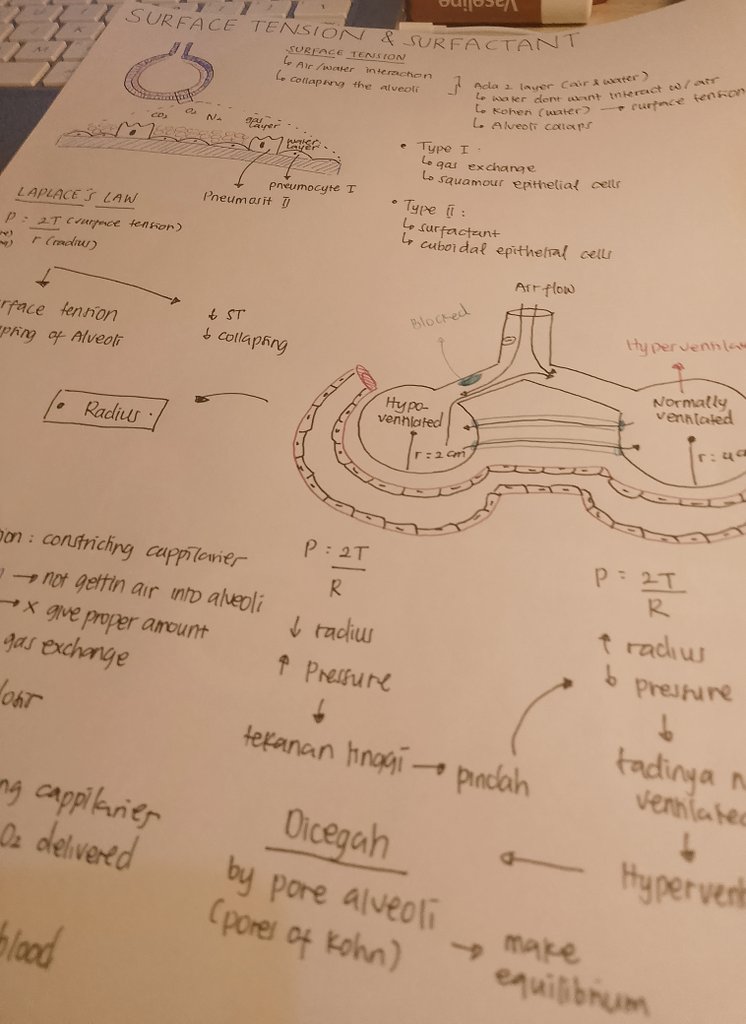 Vaseline
SURFACE TENSION & SURFACTANT
SURFACE TENSION
↳ Air/water interaction
↳ collapsing the alveoli
Ada 2 layer (air & water)
↳ water dont want interact w/ air
↳ Kohen (water) → surface tension
↳ Alveoli collaps
CO₂ O₂ N₂ gas layer
water layer
pneumocyte I
Pneumosit II
• Type I :
↳ gas exchange
↳ squamous epithelial cells
• Type II :
↳ surfactant
↳ cuboidal epithelial cells
LAPLACE'S LAW
P : 2T (surface tension)
r (radius)
rface tension
ping of Alveoli
↓ ST
↓ collapsing
• Radius •
Air flow
Blocked
Hypo-
ventilated
r = 2 cm
Hyperventila
Normally
ventilated
r : 4 c
ion : constricting cappilaries
→ not gettin air into alveoli
→ x give proper amount
gas exchange
ng cappilaries
O₂ delivered
blood
P : 2T
R
↓ radius
↑ Pressure
↓
tekanan tinggi → pindah
P = 2T
R
↑ radius
↓ pressure
↓
tadinya n
ventilated
↓
Hypervent
Dicegah
by pore alveoli
(pores of Kohn)
→ make
equilibrium